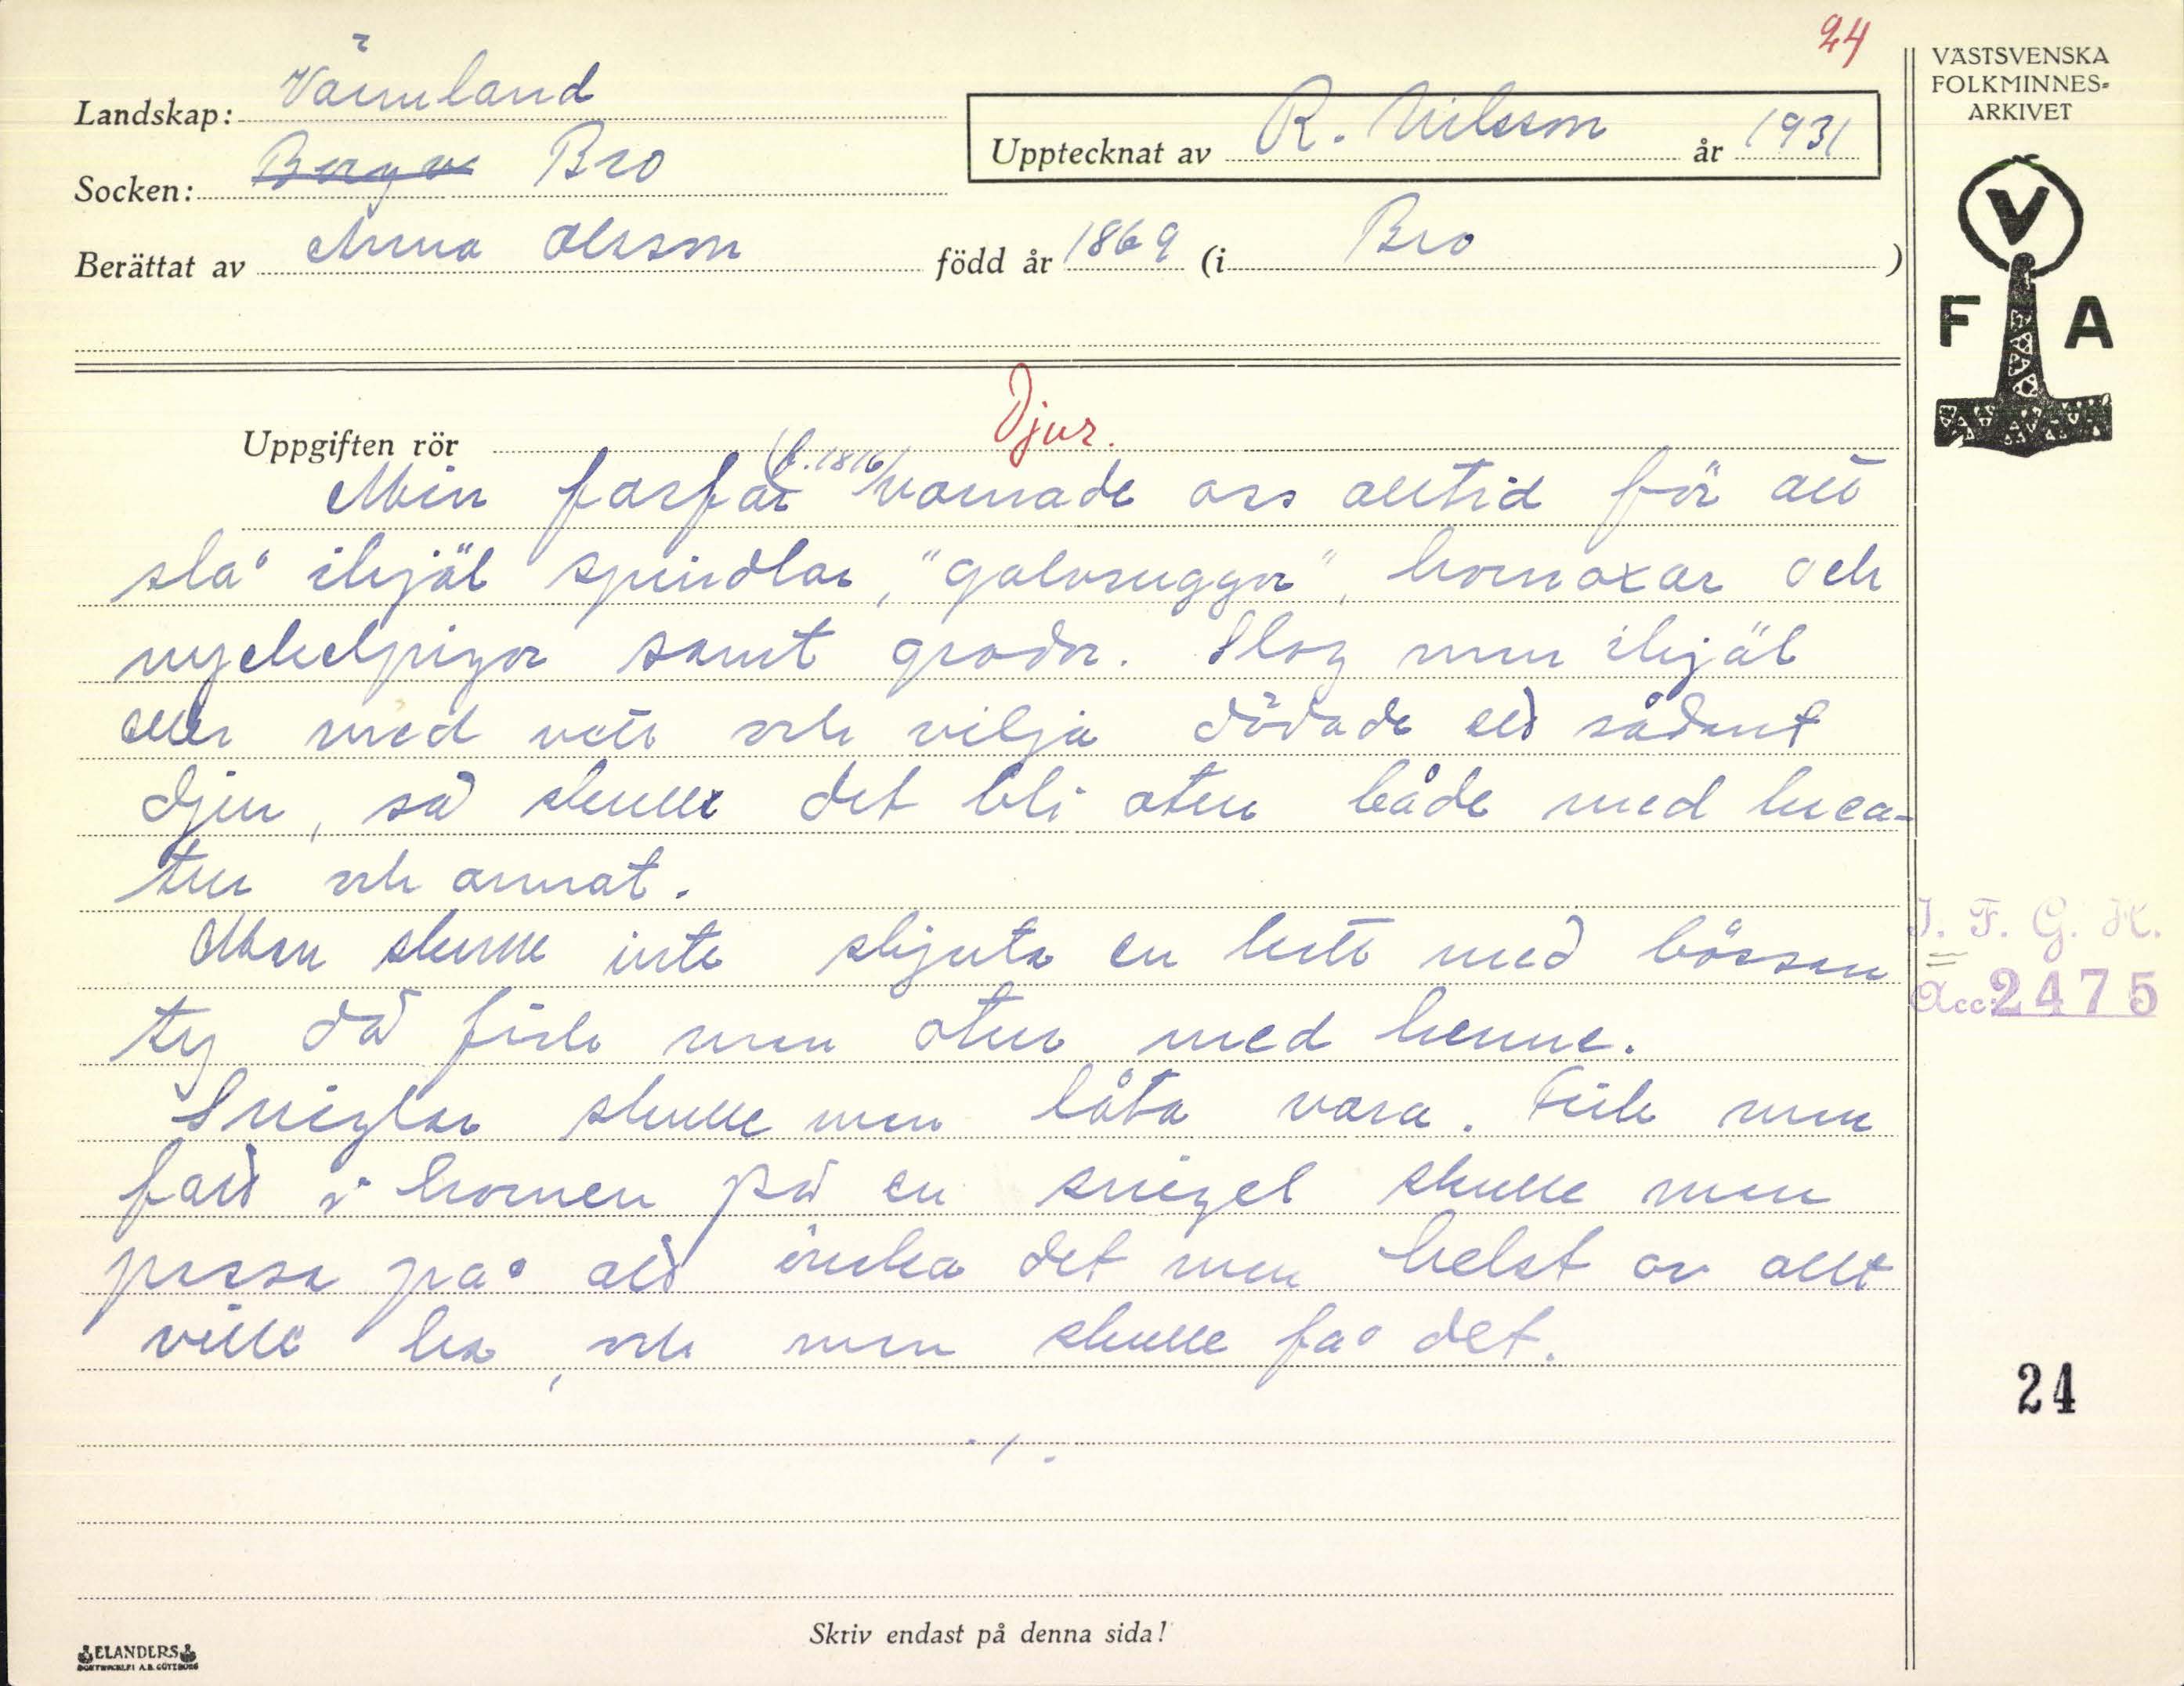 24
VÄSTSVENSKA
FOLKMINNES-
ARKIVET
Landskap: Värmland
Socken: Bro
Upptecknat av R. Nilsson år 1931
Berättat av Anna Olsson född år 1869 (i Bro )
V
F A
Uppgiften rör Djur.
Min farfar (f. 1816) varnade oss alltid för att
slå ihjäl spindlar, "galvsuggor", hornoxar och
nyckelpigor samt grodor. Slog man ihjäl
eller med vett och vilja dödade ett sådant
djur, så skulle det bli otur både med krea-
tur och annat.
Man skulle inte skjuta en katt med bössan
ty då fick man otur med henne.
Sniglar skulle man låta vara. Fick man
fatt i hornen på en snigel skulle man
passa på att önska det man helst av allt
ville ha, och man skulle få det.
./.
I. F. G. H.
Acc. 2475
24
Skriv endast på denna sida!
ELANDERS
BOKTRYCKERI A.B. GÖTEBORG